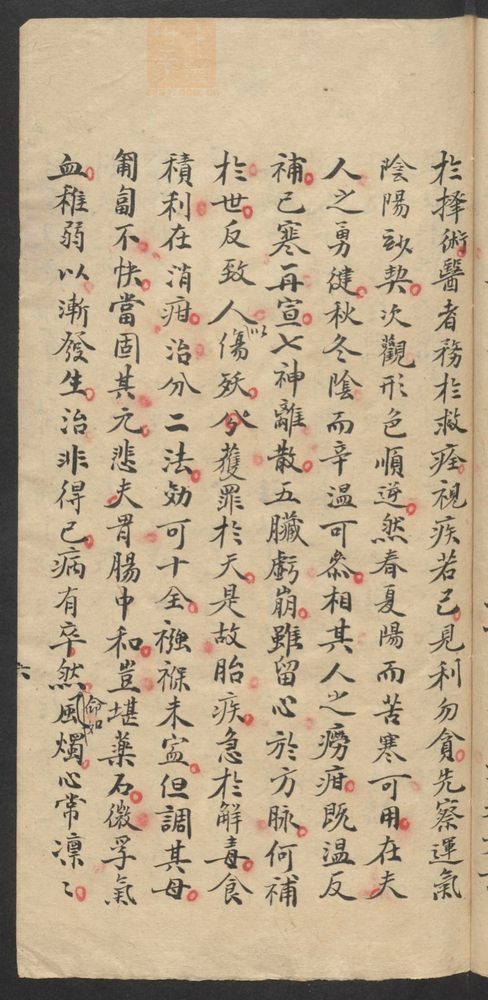 於擇術醫者務於救痊視疾若己見利勿貪先察運氣
陰陽試契次觀形色順逆然春夏陽而苦寒可用在夫
人之勇健秋冬陰而辛温可叅相其人之癆疳既温反
補已寒再宣七神離散五臟虧崩雖留心於方脉何補
於世反致人以傷殀分獲罪於天是故胎疾急於解毒食
積利在消疳治分二法効可十全襁褓未宜但調其母
匍匐不快當固其元悲夫胃腸中和豈堪藥石微孚氣
血稚弱以漸發生治非得已病有卒然命如風燭心常凜〻
六